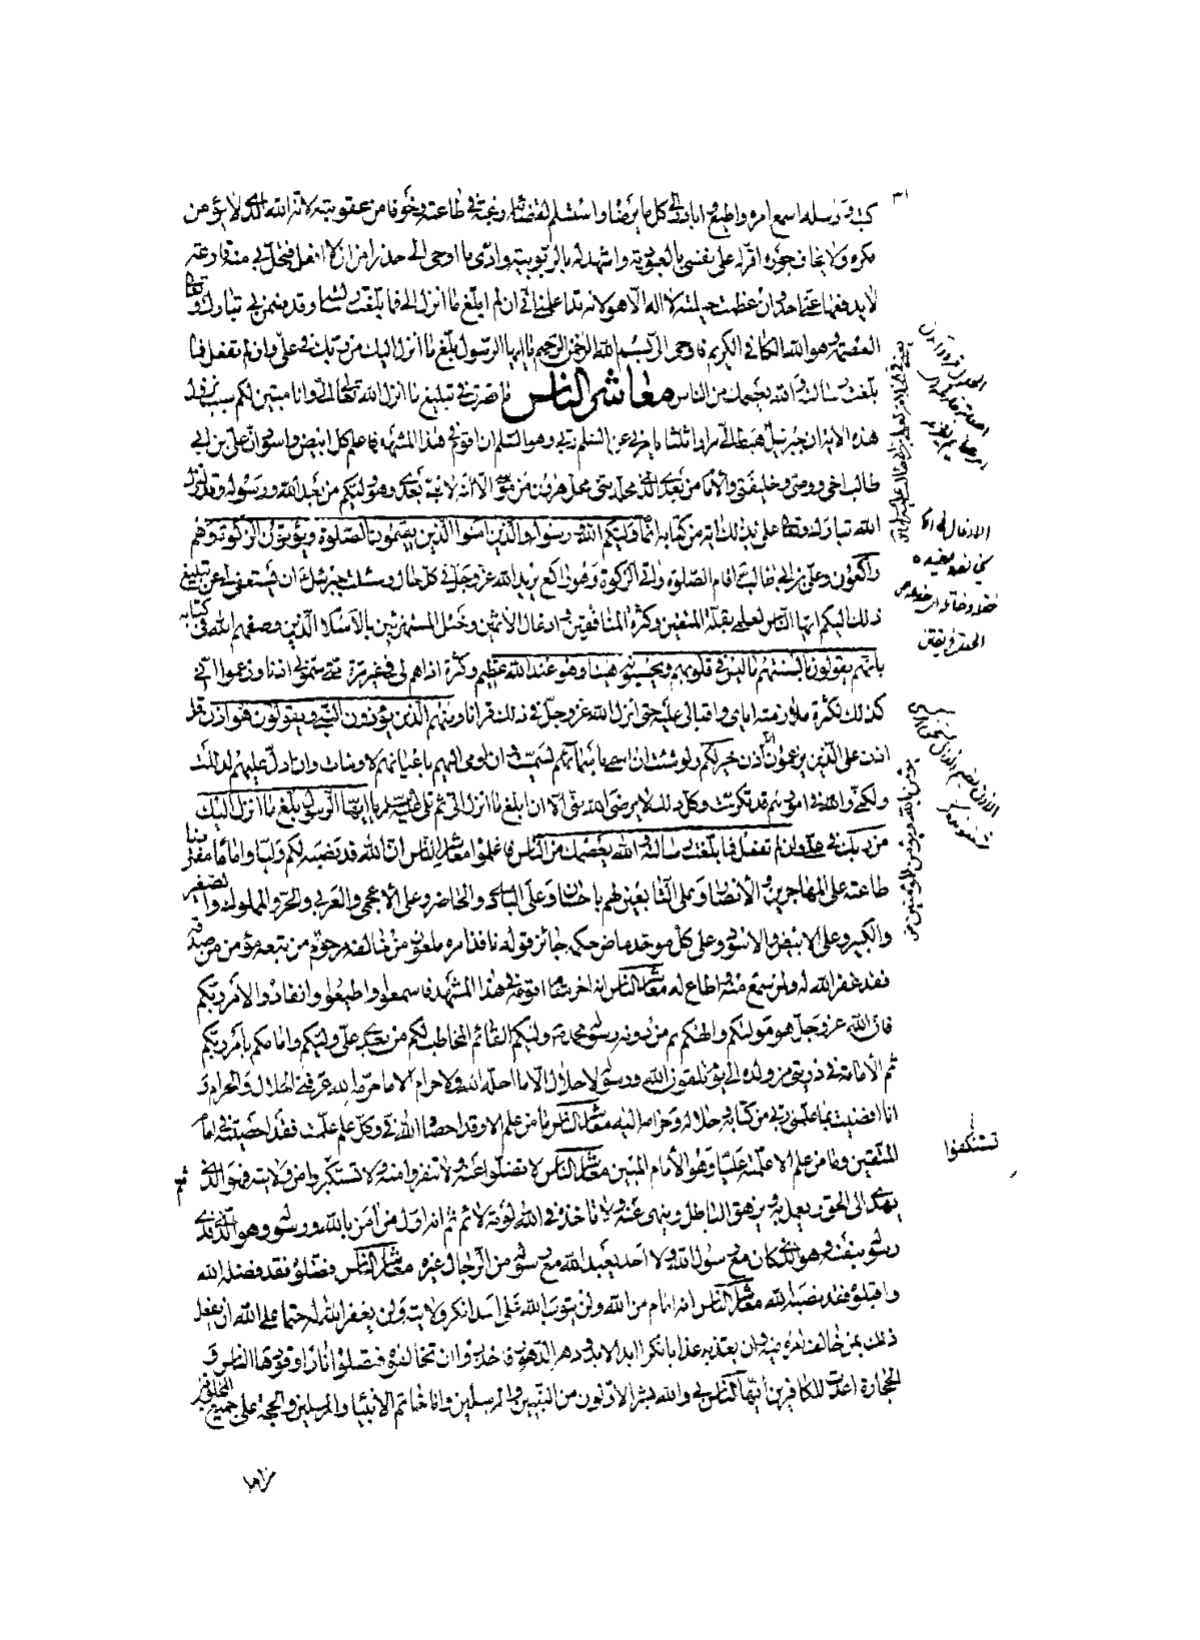 ٣١
كتبه ورسله اسمع امره واطيع وابادر الى كل ما يرضاه واستسلم لقضائه رغبة في طاعته وخوفا من عقوبته لانه الله الذى لا يؤمن
مكره ولا يخاف جوره اقر له على نفسى بالعبودية واشهد له بالربوبية واؤدى ما اوحى الى حذرا من ان لا افعل فتحل بى منه قارعة
لا يدفعها عنى احد وان عظمت حيلته لا اله الا هو لانه قد اعلمنى انى ان لم ابلغ ما انزل الى فما بلغت رسالته وقد ضمن لى تبارك وتعالى
العصمة وهو الله الكافى الكريم فاوحى الى بسم الله الرحمن الرحيم يا ايها الرسول بلغ ما انزل اليك من ربك فى على وان لم تفعل فما
بلغت رسالته والله يعصمك من الناس معاشر الناس ما قصرت فى تبليغ ما انزل الله تعالى الى وانا مبين لكم سبب نزول
هذه الاية ان جبرئيل هبط الى مرارا ثلثا يامرنى عن السلم ربى وهو السلم ان اقوم فى هذا المشهد فاعلم كل ابيض واسود ان على بن ابى
طالب اخى ووصى وخليفتى والامام من بعدى الذى محله منى محل هرون من موسى الا انه لا نبى بعدى وهو وليكم من بعد الله ورسوله وقد انزل
الله تبارك وتعالى على بذلك اية من كتابه انما وليكم الله ورسوله والذين امنوا الذين يقيمون الصلوة ويؤتون الزكوة وهم
راكعون وعلى بن ابى طالب اقام الصلوة واتى الزكوة وهو راكع يريد الله عز وجل فى كل حال وسئلت جبرئيل ان يستعفى لى عن تبليغ
ذلك اليكم ايها الناس لعلمى بقلة المتقين وكثرة المنافقين وادغال الاثمين وختل المستهزئين بالاسلام الذين وصفهم الله فى كتابه
بانهم يقولون بالسنتهم ما ليس فى قلوبهم ويحسبونه هينا وهو عند الله عظيم وكثرة اذاهم لى فى غير مرة حتى سمونى اذنا وزعموا انى
كذلك لكثرة ملازمته اياى واقبالى عليه حتى انزل الله عز وجل فى ذلك قرانا ومنهم الذين يؤذون النبى ويقولون هو اذن قل
اذن على الذين يزعمون انه اذن خير لكم ولو شئت ان اسمى باسمائهم لسميت وان اومى اليهم باعيانهم لاومات وان ادل عليهم لدللت
ولكنى والله فى امورهم قد تكرمت وكل ذلك لا يرضى الله منى الا ان ابلغ ما انزل الى ثم تلى يا ايها الرسول بلغ ما انزل اليك
من ربك فى على وان لم تفعل فما بلغت رسالته والله يعصمك من الناس فاعلموا معاشر الناس ان الله قد نصبه لكم وليا واماما مفترضا
طاعته على المهاجرين والأنصار وعلى التابعين لهم باحسان وعلى البادى والحاضر وعلى الأعجمى والعربى والحر والمملوك والصغير
والكبير وعلى الابيض والاسود وعلى كل موحد ماض حكمه جائز قوله نافذ امره ملعون من خالفه مرحوم من تبعه مؤمن من صدقه
فقد غفر الله له ولمن سمع منه واطاع له معاشر الناس انه اخر مقام اقومه فى هذا المشهد فاسمعوا واطيعوا وانقادوا لأمر ربكم
فان الله عز وجل هو موليكم والهكم ثم من دونه رسوله محمد وليكم القائم المخاطب لكم ثم من بعدى على وليكم وامامكم بامر ربكم
ثم الأمامة فى ذريتى من ولده الى يوم تلقون الله ورسوله لا حلال الا ما احله الله ولا حرام الا ما حرمه الله عرفنى الحلال والحرام و
انا افضيت بما علمنى ربى من كتابه وحلاله وحرامه اليه معاشر الناس ما من علم الا وقد احصاه الله فى وكل علم علمت فقد احصيته فى امام
المتقين وما من علم الا علمته عليا وهو الأمام المبين معاشر الناس لا تضلوا عنه ولا تنفروا منه ولا تستكبروا من ولايته فهو الذى
تستنكفوا
يهدى الى الحق ويعمل به ويزهق الباطل وينهى عنه ولا تاخذه فى الله لومة لائم ثم انه اول من آمن بالله ورسوله وهو الذى فدى
رسوله بنفسه وهو الذى كان مع رسول الله ولا احد يعبد الله مع رسوله من الرجال غيره معاشر الناس فضلوه فقد فضله الله
واقبلوه فقد نصبه الله معاشر الناس انه امام من الله ولن يتوب الله على احد انكر ولايته ولن يغفر الله له حتما على الله ان يفعل
ذلك بمن خالف امره فيه وان يعذبه عذابا نكرا ابد الابد ودهر الدهور فاحذروا ان تخالفوه فتصلوا نارا وقودها الناس و
الحجارة اعدت للكافرين ايها الناس بى والله بشر الأولون من النبيين والمرسلين وانا خاتم الانبياء والمرسلين والحجة على جميع المخلوقين
من اهل